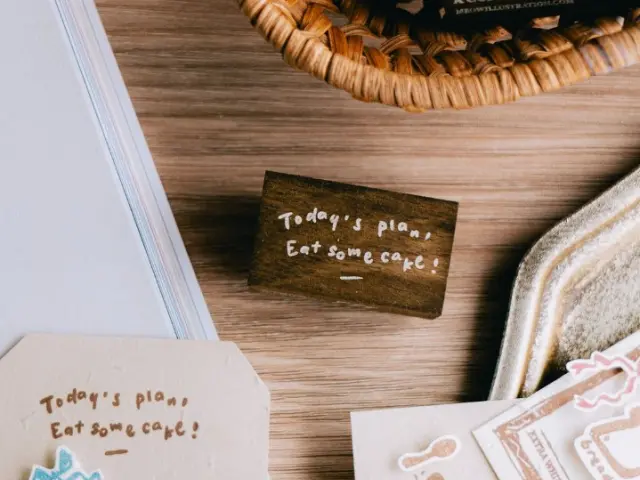 MEOWILLUSTRATION.COM
Today's plan,
Eat some cake!
Today's plan,
Eat some cake!
EXTRA WHI
Bread